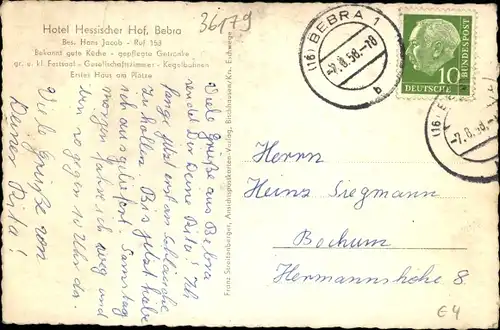 Hotel Hessischer Hof, Bebra
Bes. Hans Jacob - Ruf 153
Bekannt gute Küche - gepflegte Getränke
gr. u. kl. Festsaal - Gesellschaftszimmer - Kegelbahnen
Erstes Haus am Platze
36179
(16) BEBRA 1
-7.8.58.-18
b
10
DEUTSCHE
BUNDESPOST
(16)
-7.8.58.-
Viele Grüße aus Bebra
sendet Dir Deine Rita! Ich
zu holen. Bis jetzt habe
ich Samstag
morgen fahre ich weg und
gegen 10 Uhr da.
Viele Grüße von
Deiner Rita!
Franz Streitenberger, Ansichtspostkarten-Verlag, Bischhausen/Krs. Eschwege
Herrn
Heinz Siegmann
Bochum
Hermannshöhe 8.
€4